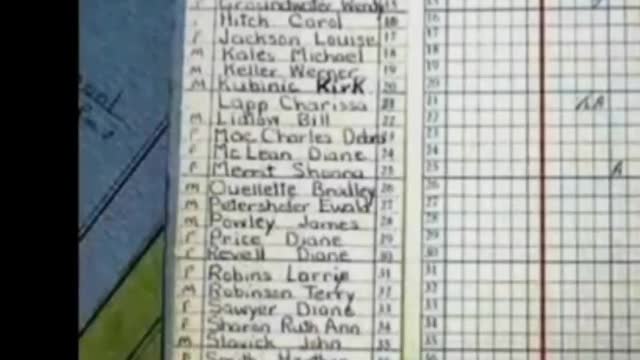 F Groundwater Wendy 15 15
Hitch Carol 16 16
F Jackson Louise 17 17
M Kales Michael 18 18
M Keller Werner 19 19
M Kubinic Kirk 20 20
Lapp Charissa 21 21
M Lidlow Bill 22 22
F Mac Charles Debra 23 23
F McLean Diane 24 24
F Merrit Shanna 25 25 A
M Ouellette Bradley 26 26
M Petershofer Ewald 27 27
M Powley James 28 28
F Price Diane 29 29
F Revell Diane 30 30
F Robins Larrie 31 31
M Robinson Terry 32 32
F Sawyer Diane 33 33
F Sharon Ruth Ann 34 34
M Slavich John 35 35
Smith